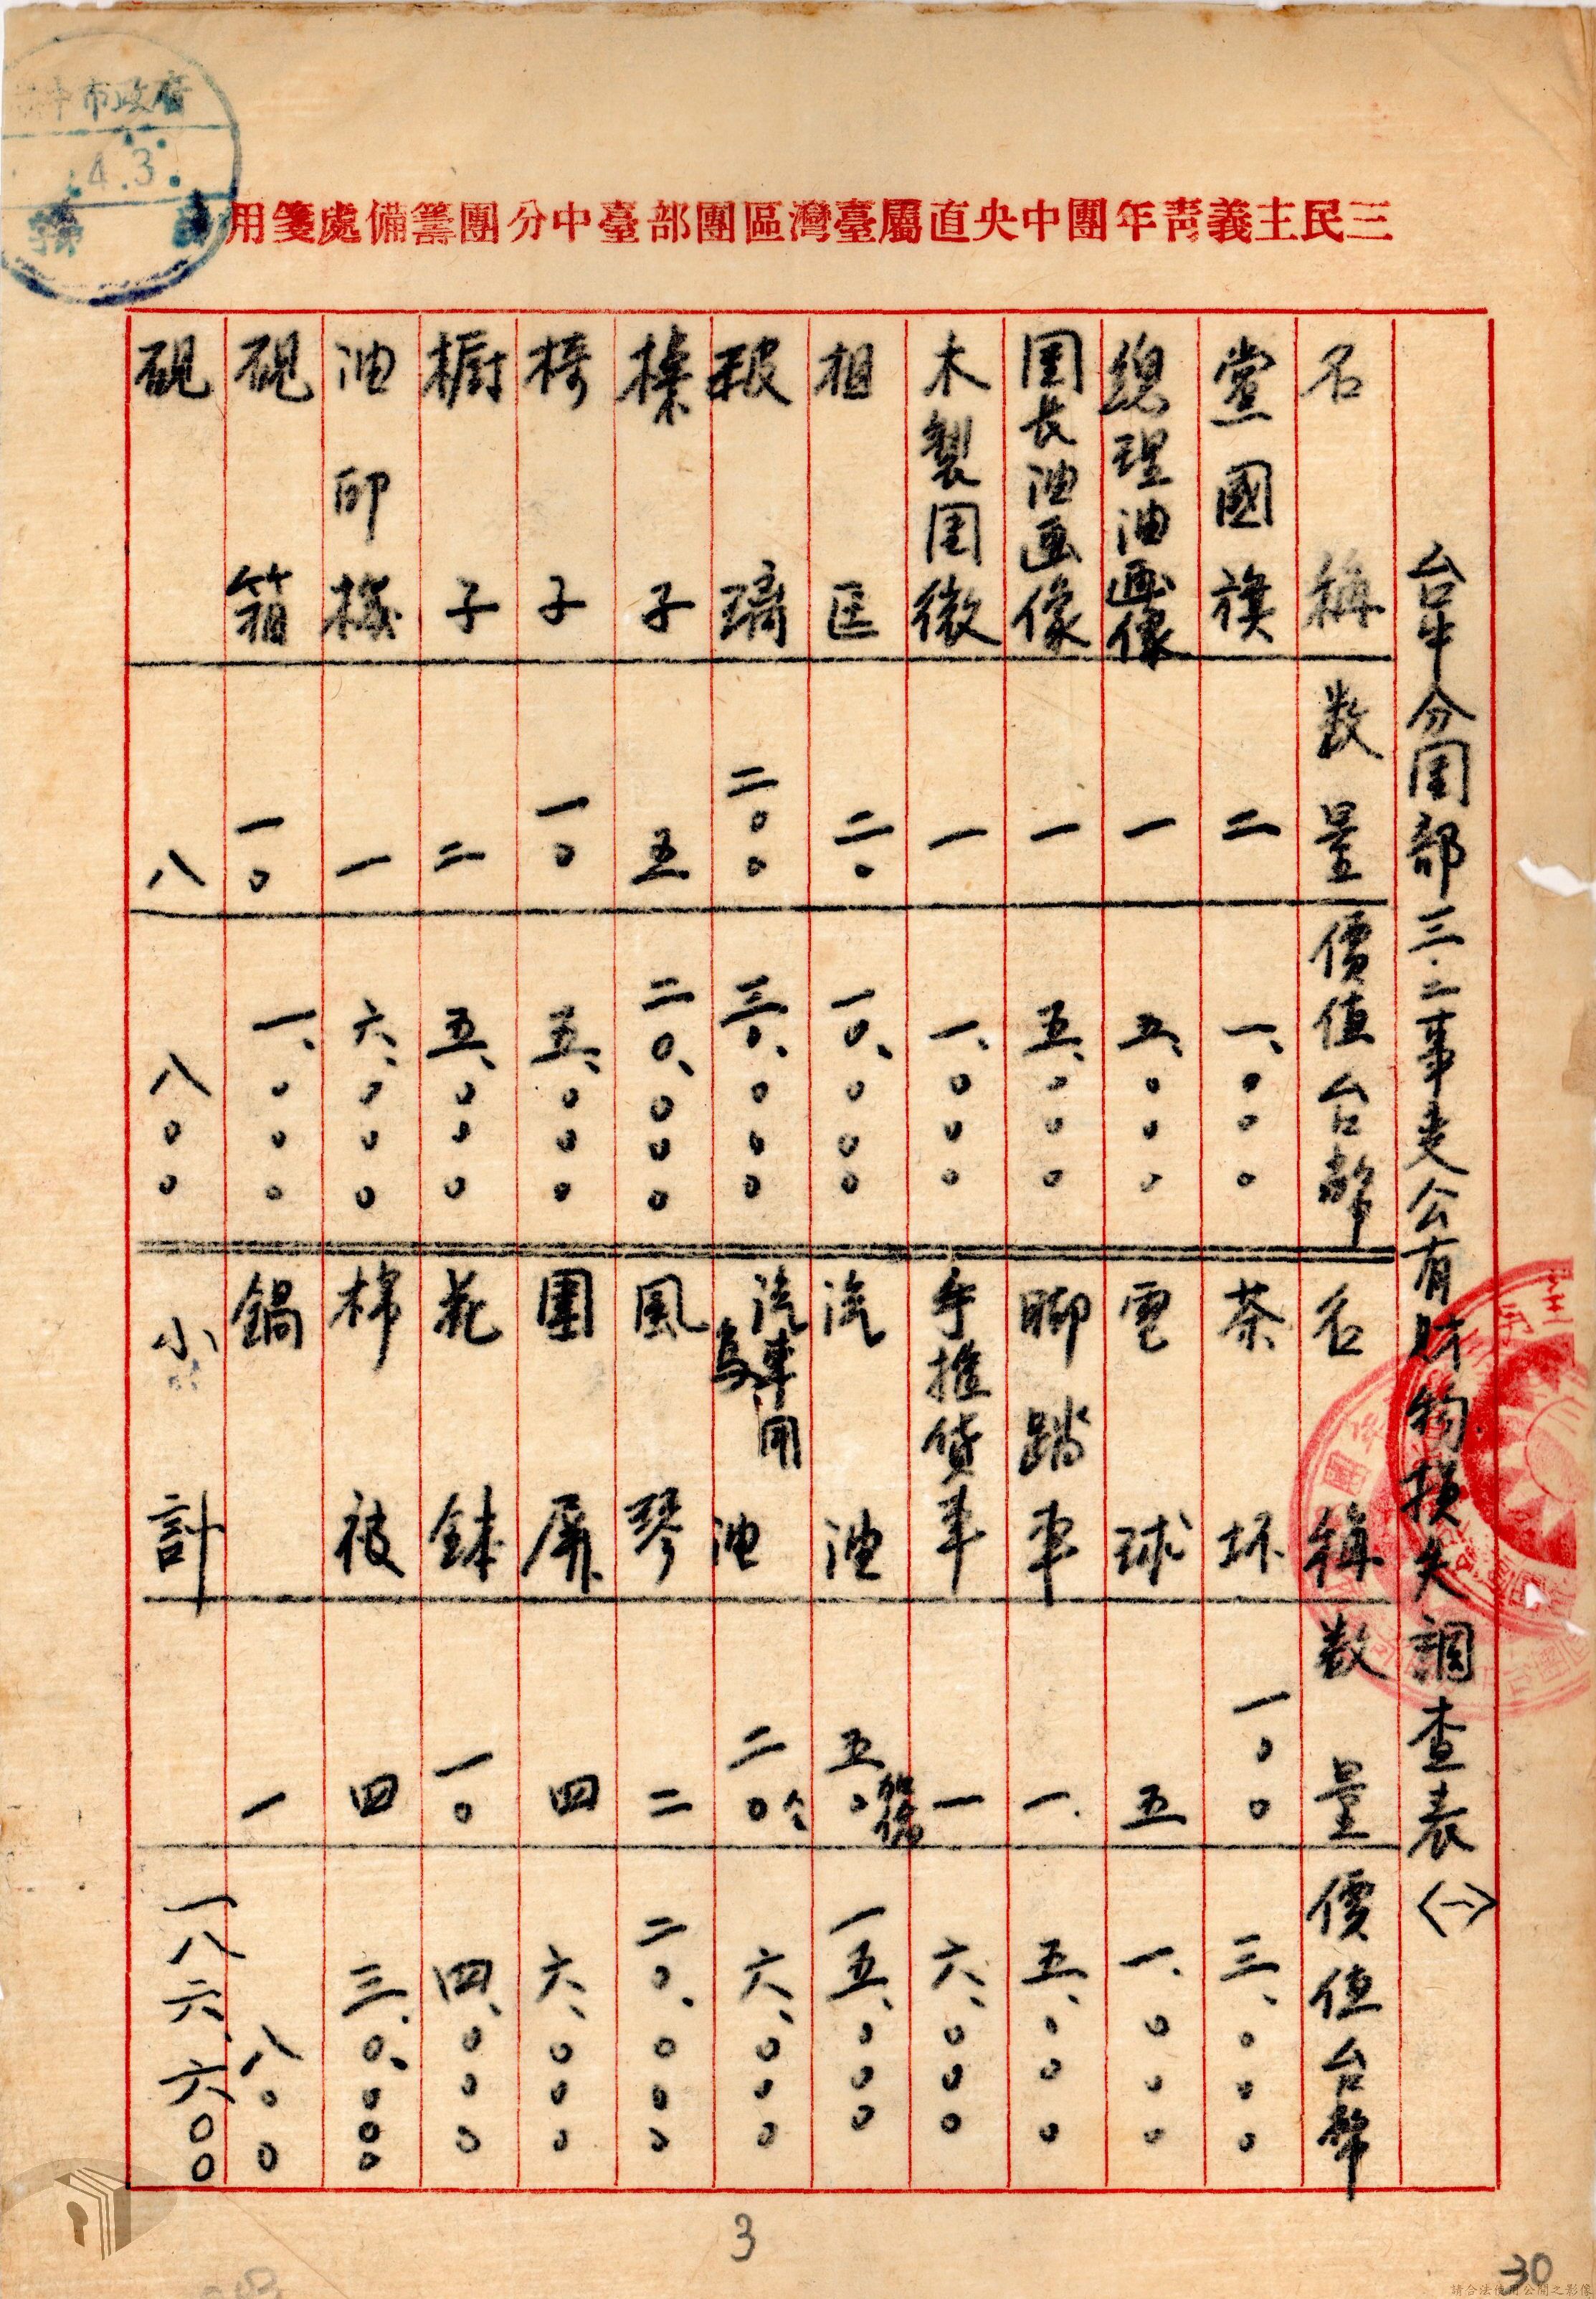 台中市政府
4.3.
三民主義青年團中央直屬臺灣區團部臺中分團籌備處箋用
台中分团部三.二事变公有財物損失調查表〈一〉
名稱 数量 價值台幣 名稱 数量 價值台幣
黨國旗 二 一、〇〇〇 茶杯 一〇〇 三、〇〇〇
總理油畫像 一 五、〇〇〇 電球 五 一、〇〇〇
团長油画像 一 五、〇〇〇 脚踏車 一 五、〇〇〇
木製团徽 一 一、〇〇〇 手推貨車 一 六、〇〇〇
相匡 二〇 一〇、〇〇〇 汽油 五〇 一五、〇〇〇
玻璃 二〇〇 三〇、〇〇〇 汽車用烏油 二〇 六、〇〇〇
棹子 五 二〇、〇〇〇 風琴 二 二〇、〇〇〇
椅子 一〇 五、〇〇〇 圍屏 四 六、〇〇〇
橱子 二 五、〇〇〇 花鉢 一〇 四、〇〇〇
油印機 一 六、〇〇〇 棉被 四 三〇、〇〇〇
硯箱 一〇 一、〇〇〇 鍋 一 八〇〇
硯 八 八〇〇 小計 一八六、六〇〇
3
30
請合法使用公開之影像